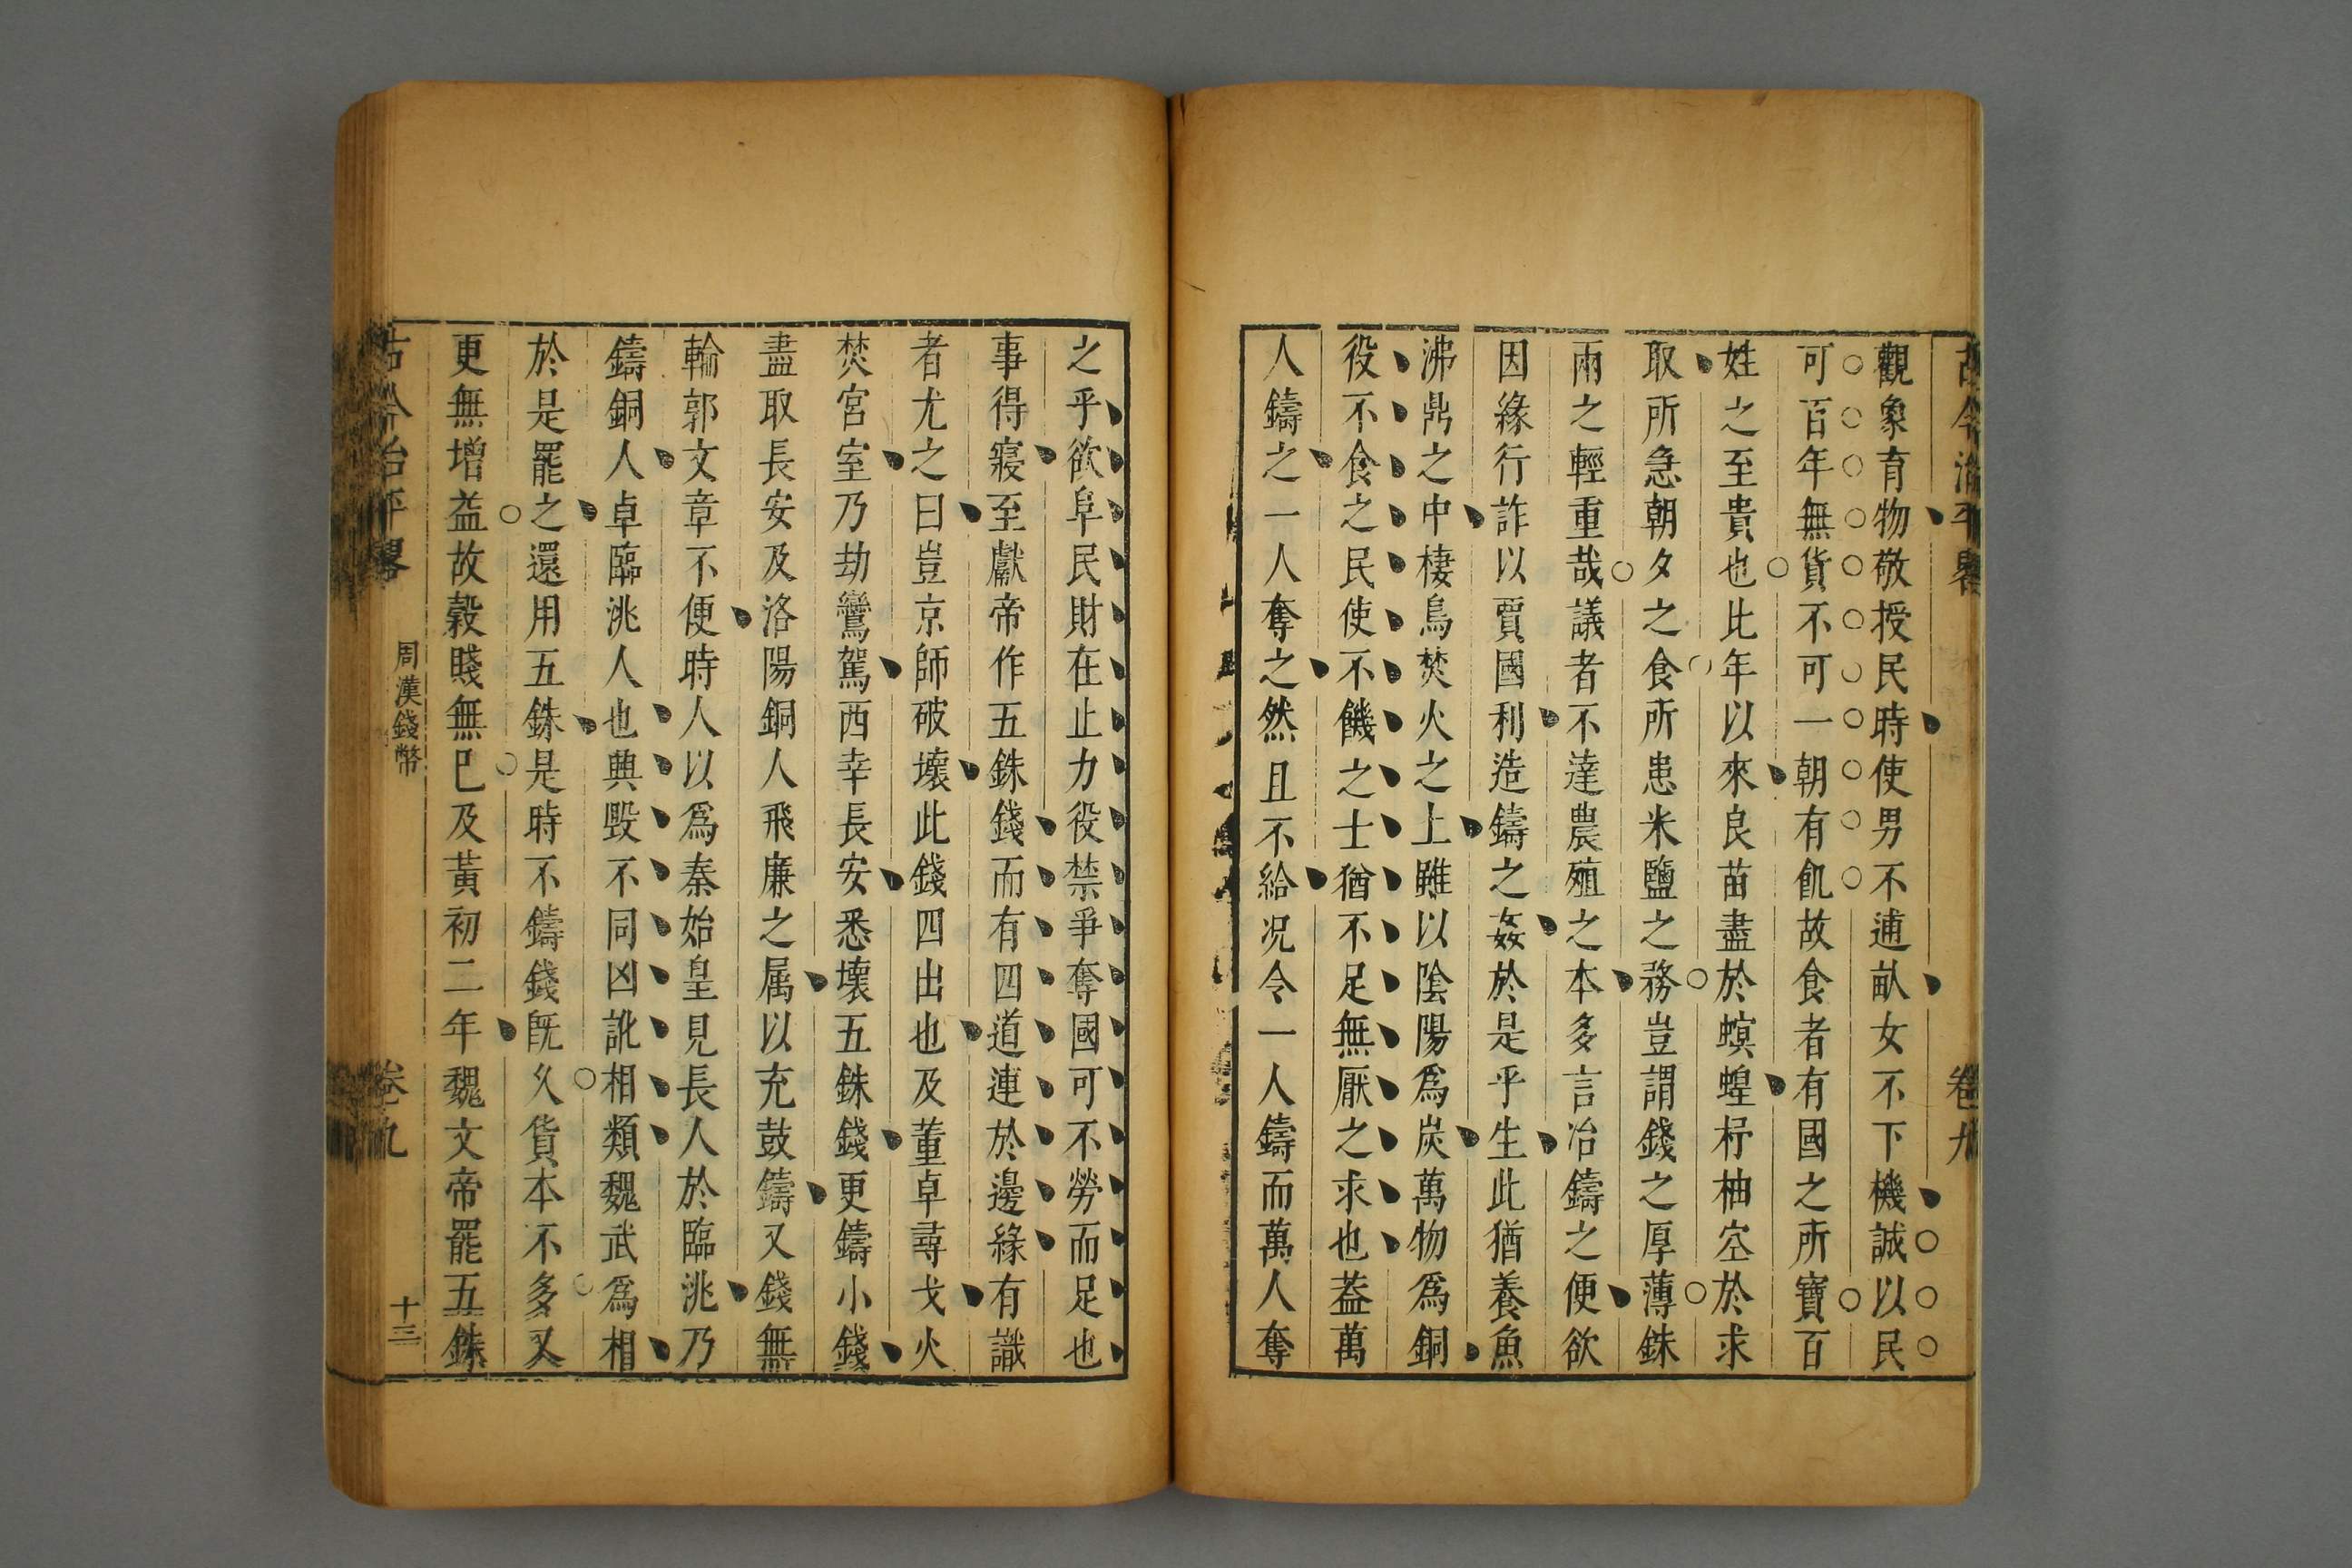 古今治平畧 卷九
觀象育物敬授民時使男不逋畝女不下機誠以民
可百年無貨不可一朝有飢故食者有國之所寶百
姓之至貴也比年以來良苗盡於螟蝗杼柚空於求
取所急朝夕之食所患米鹽之務豈謂錢之厚薄銖
兩之輕重哉議者不達農殖之本多言冶鑄之便欲
因緣行詐以賈國利造鑄之姦於是乎生此猶養魚
沸鼎之中棲鳥焚火之上雖以陰陽爲炭萬物爲銅
役不食之民使不饑之士猶不足無厭之求也葢萬
人鑄之一人奪之然且不給况令一人鑄而萬人奪
之乎欲阜民財在止力役禁爭奪國可不勞而足也
事得寢至獻帝作五銖錢而有四道連於邊緣有識
者尤之曰豈京師破壞此錢四出也及董卓尋戈火
焚宮室乃劫鸞駕西幸長安悉壞五銖錢更鑄小錢
盡取長安及洛陽銅人飛廉之属以充鼓鑄又錢無
輪郭文章不便時人以爲秦始皇見長人於臨洮乃
鑄銅人卓臨洮人也興毁不同凶訛相類魏武爲相
於是罷之還用五銖是時不鑄錢旣久貨本不多又
更無增益故穀賤無已及黃初二年魏文帝罷五銖
古今治平畧 周漢錢幣 卷九 十三